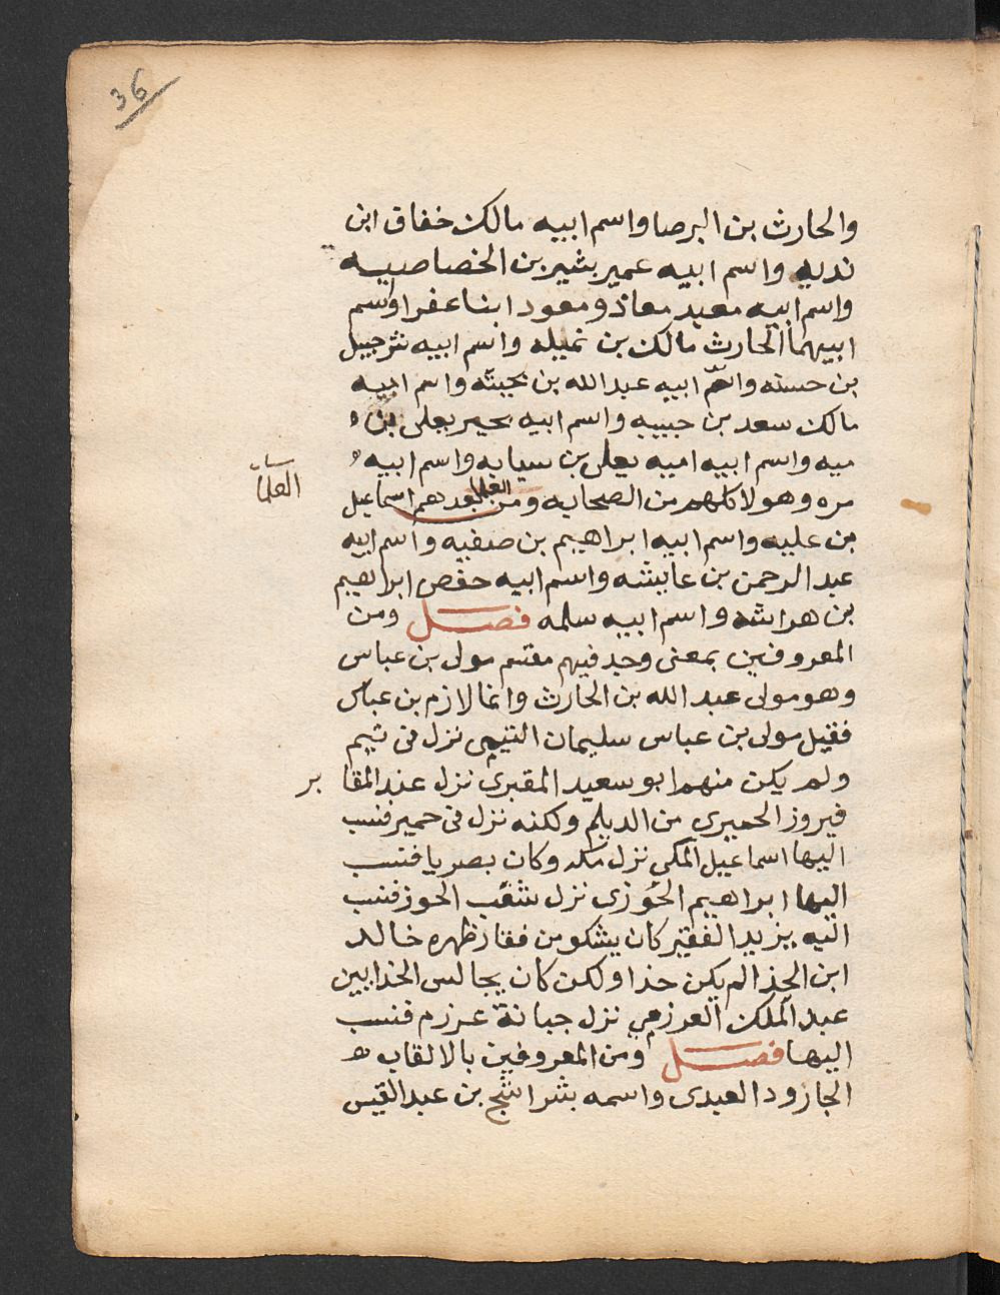 36
والحارث بن البرصا واسم ابيه مالك خفاف ابن
ندبه واسم ابيه عمير بشير بن الخصاصيه
واسم ابيه معبد معاذ ومعود ابنا عفرا واسم
ابيهما الحارث مالك بن نميله واسم ابيه شرجيل
بن حسنه واسم ابيه عبد الله بن بحينه واسم ابيه
مالك سعد بن حبيبه واسم ابيه بحير يعلى بن
ميه واسم ابيه اميه يعلى بن سيابه واسم ابيه
مره وهولا كلهم من الصحابه ومن العلما بعدهم اسماعيل
العلما
بن عليه واسم ابيه ابراهيم بن صفيه واسم ابيه
عبد الرحمن بن عايشه واسم ابيه حفص ابراهيم
بن هراشه واسم ابيه سلمه فصل ومن
المعروفين بمعنى وجد فيهم مقسم مولى بن عباس
وهو مولى عبد الله بن الحارث وانما لازم بن عباس
فقيل مولى بن عباس سليمان التيمى نزل فى تيم
ولم يكن منهم ابو سعيد المقبرى نزل عند المقا بر
فيروز الحميرى من الديلم ولكنه نزل فى حمير فنسب
اليها اسماعيل المكى نزل مكه وكان بصريا فنسب
اليها ابراهيم الخوزى نزل شعب الخوز فنسب
اليه يزيد الفقير كان يشكو من فقار ظهره خالد
ابن الحذا لم يكن حذا ولكن كان يجالس الحذايين
عبد الملك العرزمي نزل جبانة عرزم فنسب
اليها فصل ومن المعروفين بالالقاب
الجارود العبدى واسمه بشر اشج بن عبد القيس